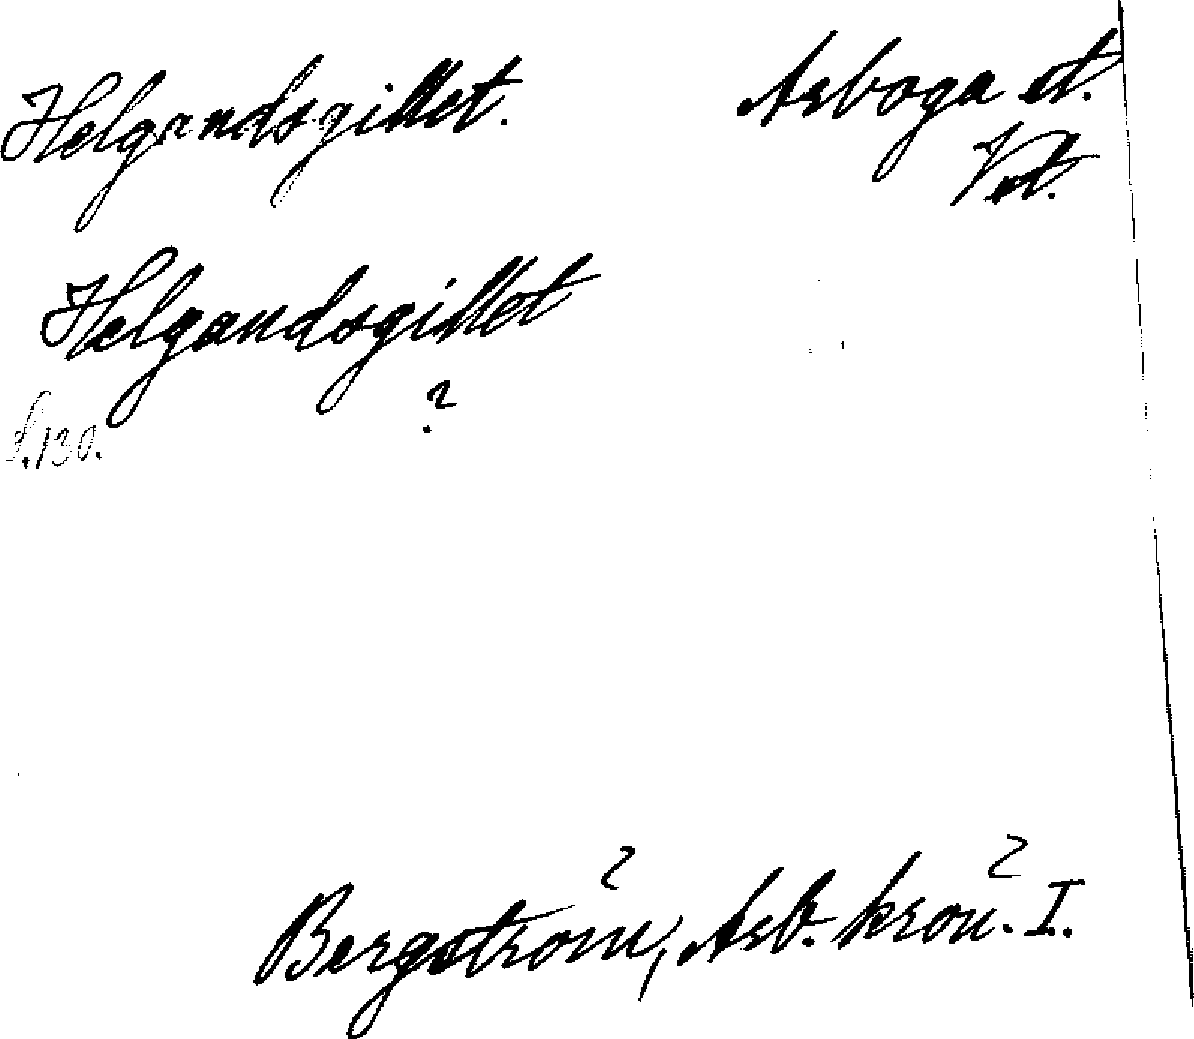 Helgandsgillet. Arboga st.
Vstl.
Helgandsgillet
?
S. 130.
Bergström, Arb. krön. I.